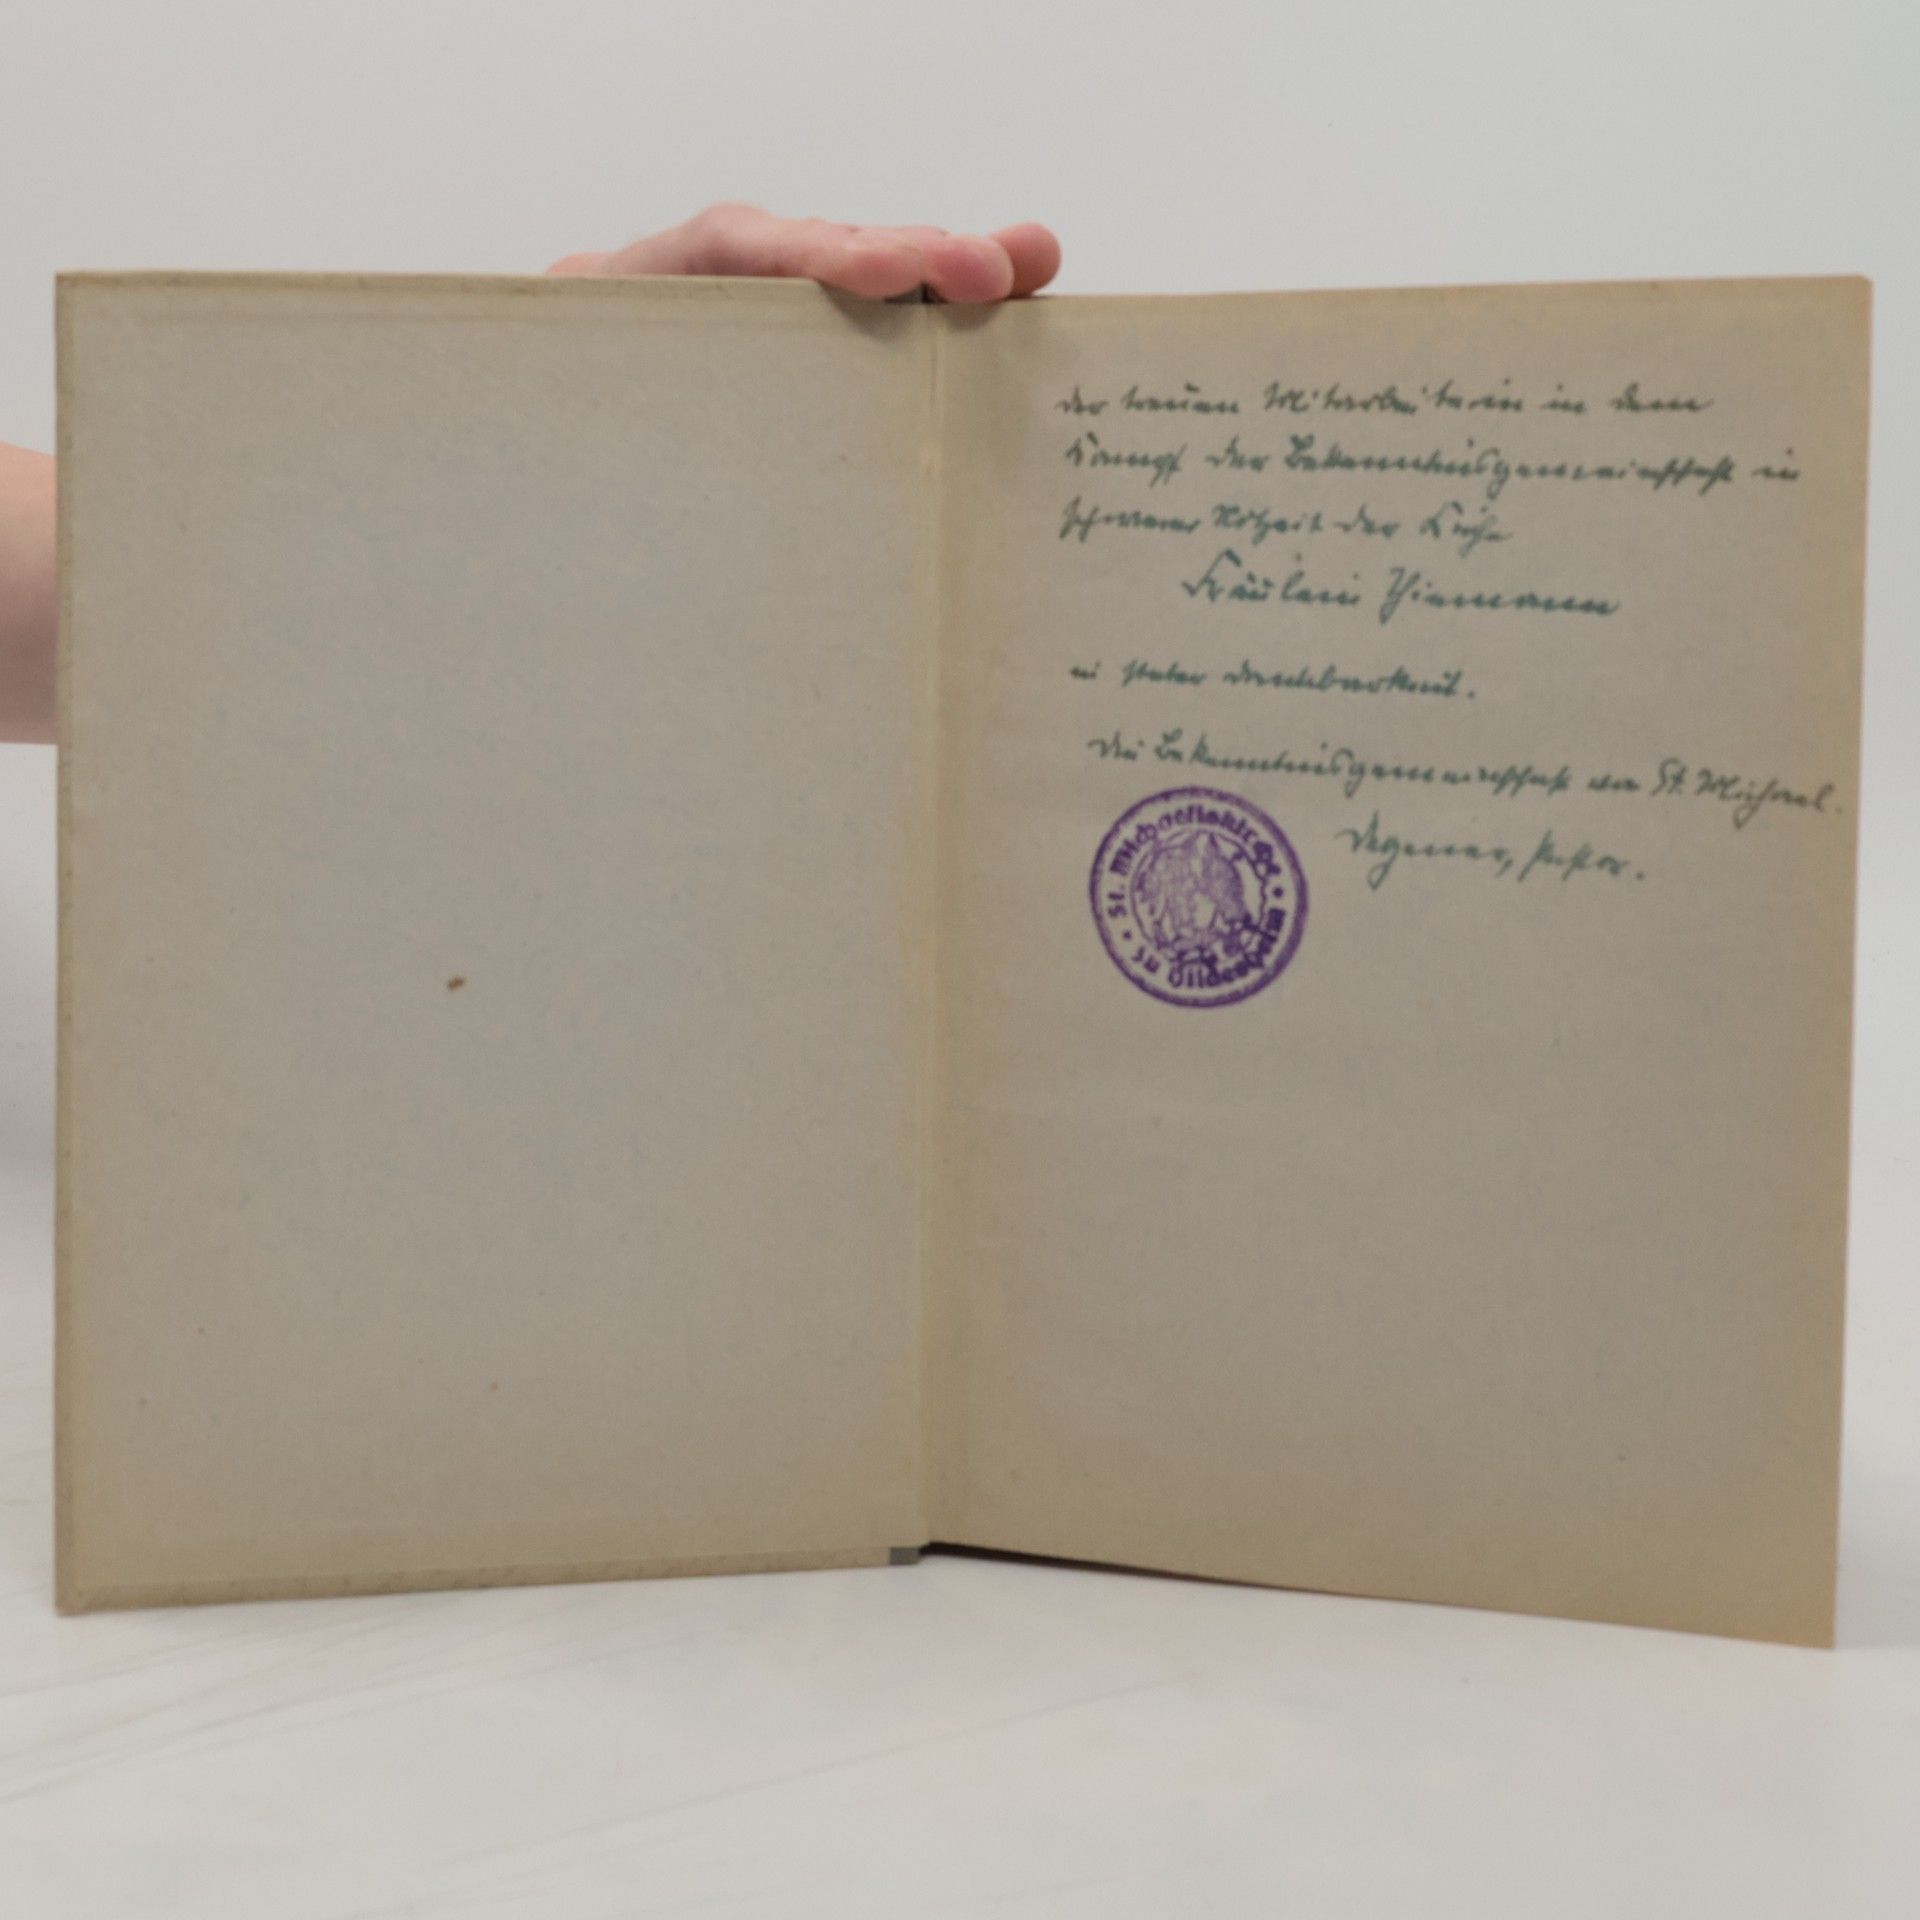 der treuen Mitarbeiterin in dem
Kampf der Bekenntnisgemeinschaft in
schwerer Notzeit der Kirche
Fräulein Thiemann
in steter Dankbarkeit.
Die Bekenntnisgemeinschaft von St. Michael.
Degener, Pastor.
St. Michaeliskirche • zu Hildesheim •